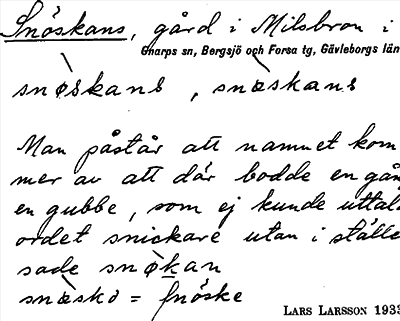 Snöskans, gård i Milsbron i
Gnarps sn, Bergsjö och Forsa tg, Gävleborgs län
snøskans , snœskans
Man påstår att namnet kom
mer av att där bodde en gån
en gubbe, som ej kunde uttala
ordet snickare utan i ställe
sade snøkan
snœsko = fnöske
LARS LARSSON 1933